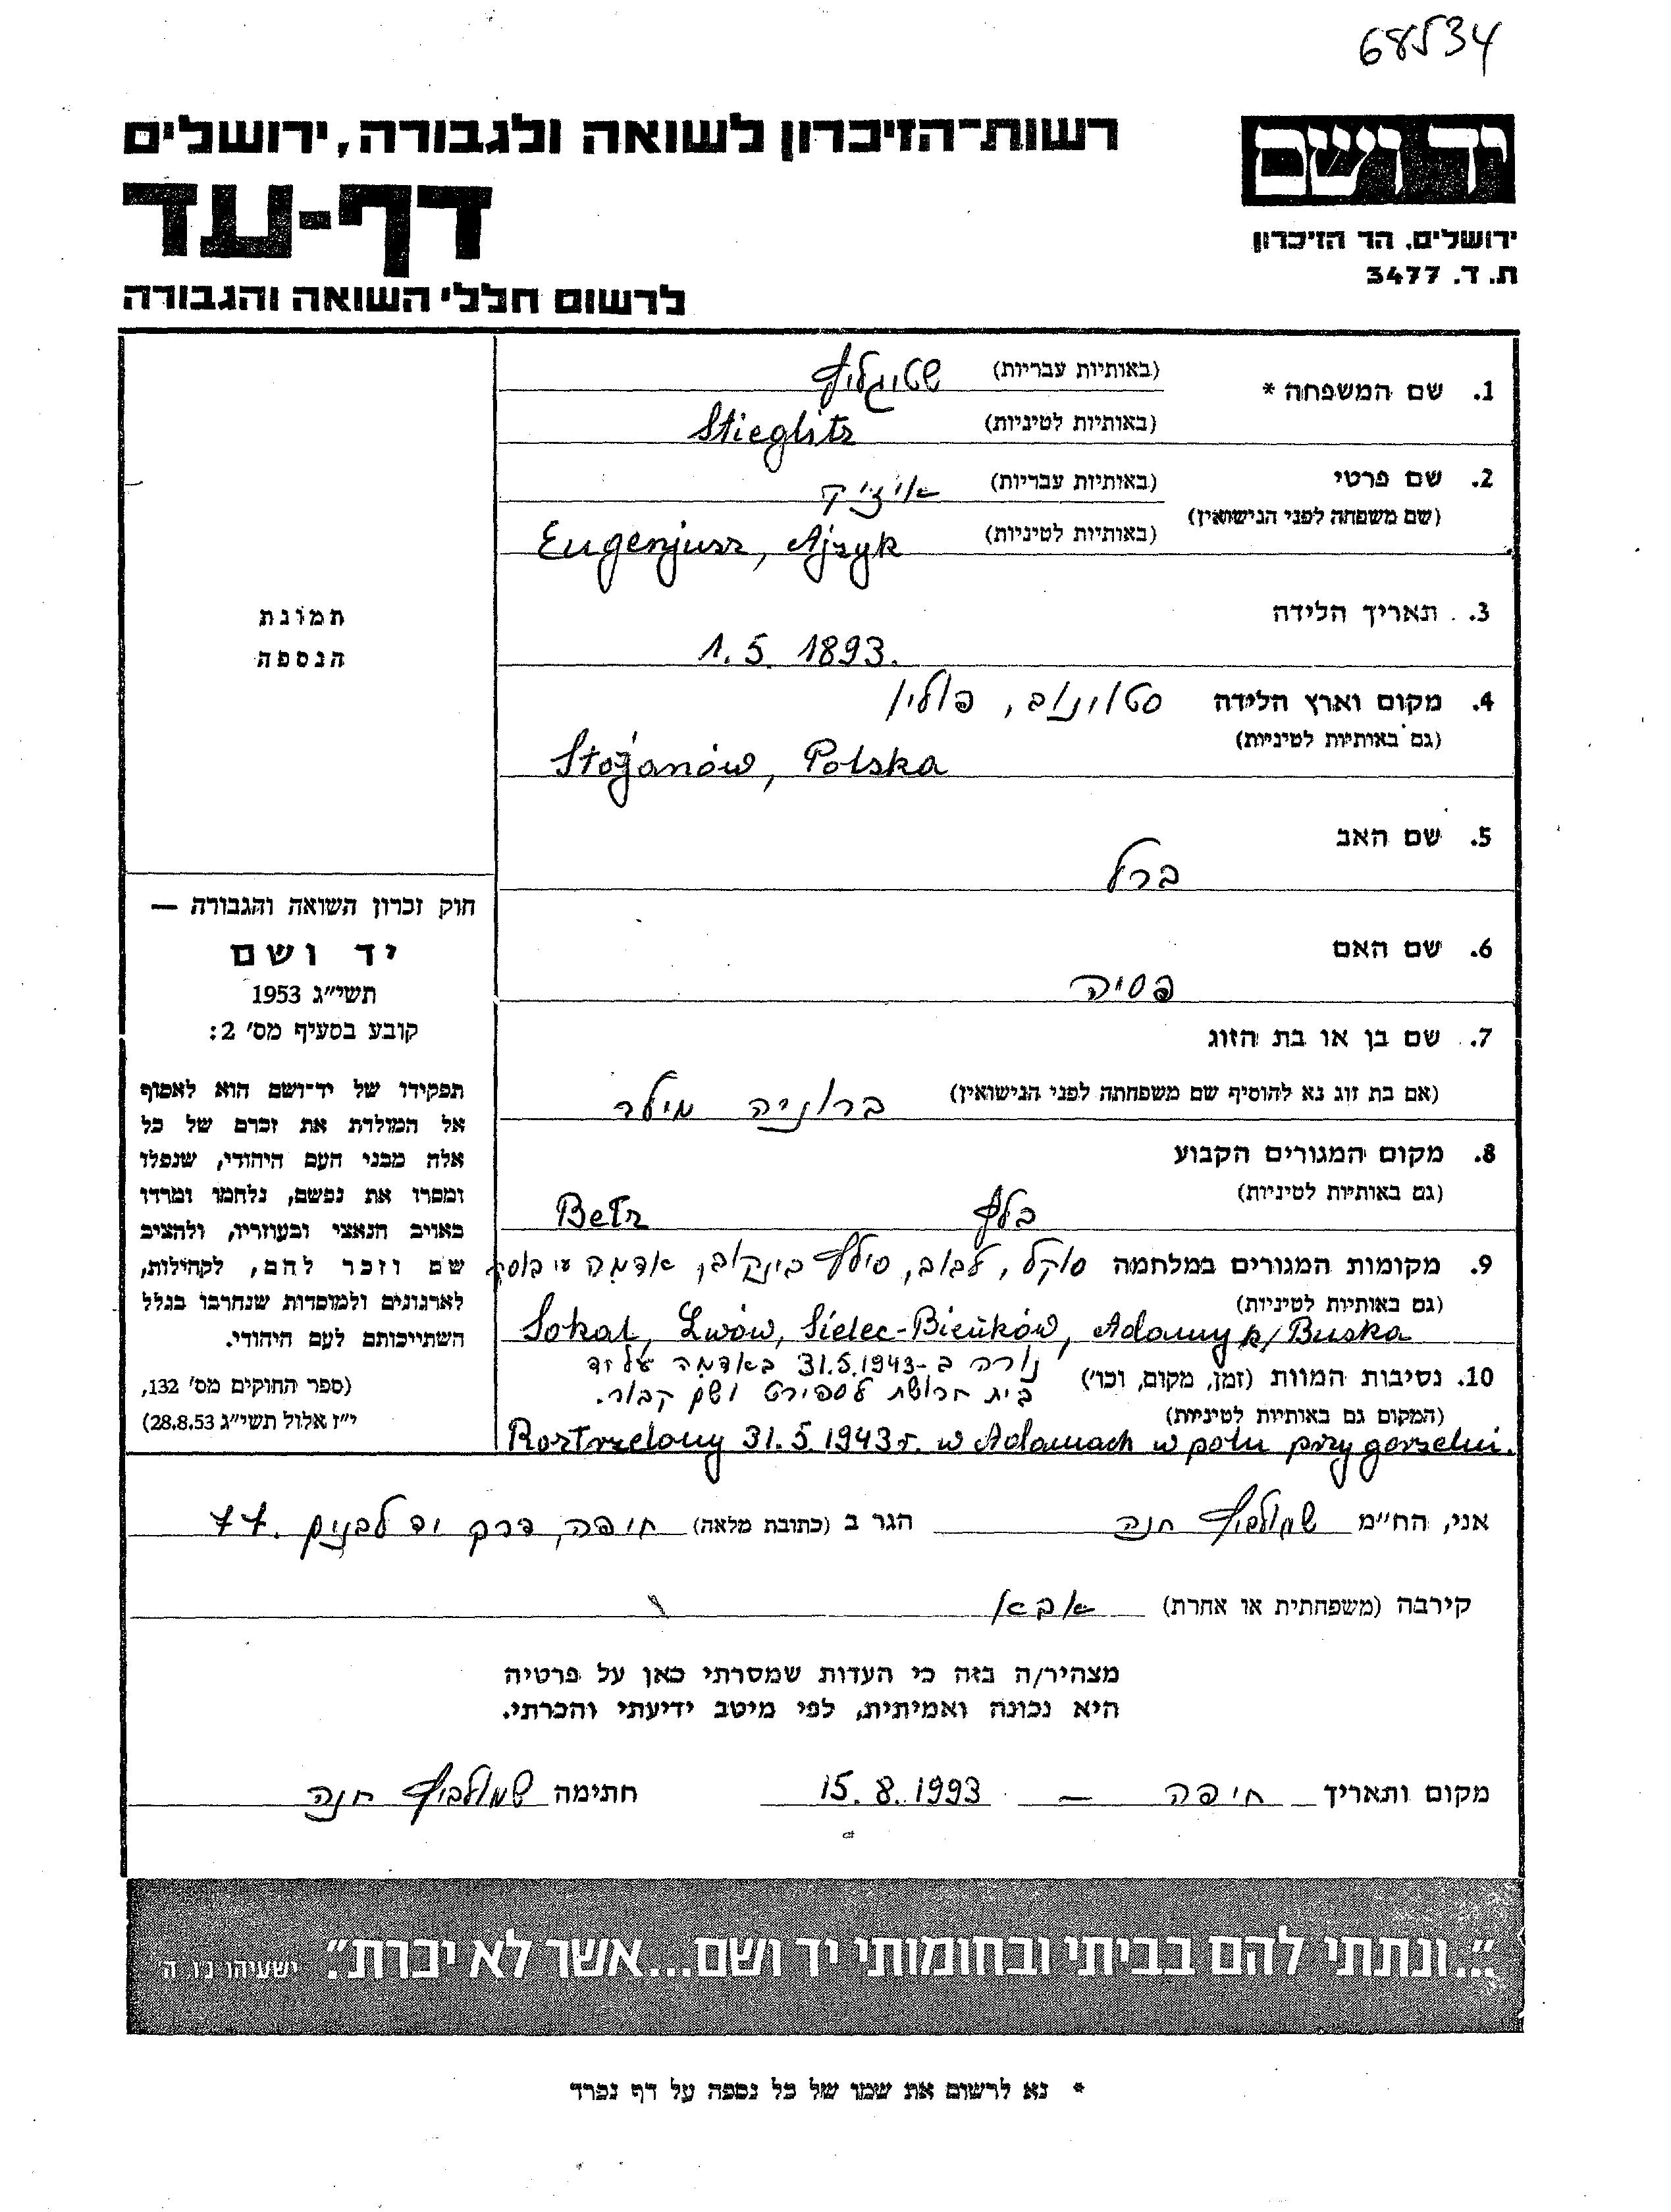 68534
יד ושם
ירושלים, הר הזיכרון
ת. ד. 3477
רשות־הזיכרון לשואה ולגבורה, ירושלים
דף-עד
לרשום חללי השואה והגבורה
תמונת
הנספה
חוק זכרון השואה והגבורה —
יד ושם
תשי״ג 1953
קובע בסעיף מס׳ 2:
תפקידו של יד־ושם הוא לאסוף
אל המולדת את זכרם של כל
אלה מבני העם היהודי, שנפלו
ומסרו את נפשם, נלחמו ומרדו
באויב הנאצי ובעוזריו, ולהציב
שם וזכר להם, לקהילות,
לארגונים ולמוסדות שנחרבו בגלל
השתייכותם לעם היהודי.
(ספר החוקים מס׳ 132,
י״ז אלול תשי״ג 28.8.53)
1. שם המשפחה * (באותיות עבריות) שטיגליץ
(באותיות לטיניות) Stieglitz
2. שם פרטי (באותיות עבריות) אייזיק
(שם משפחה לפני הנישואין) (באותיות לטיניות) Eugenjusz, Ajzyk
3. תאריך הלידה
1.5. 1893.
4. מקום וארץ הלידה סטוינוב, פולין
(גם באותיות לטיניות)
Stojanów, Polska
5. שם האב
ברל
6. שם האם
פסיה
7. שם בן או בת הזוג
(אם בת זוג נא להוסיף שם משפחתה לפני הנישואין) ברוניה מילר
8. מקום המגורים הקבוע
(גם באותיות לטיניות) בלץ Bełz
9. מקומות המגורים במלחמה סוקל, לבוב, סילץ בינקוב, אדמה ע״י בוסק
(גם באותיות לטיניות)
Sokal, Lwów, Sielec-Bieńków, Adamy k/Buska
10. נסיבות המוות (זמן, מקום, וכו׳) נורה ב-31.5.1943 באדמה על יד
בית חרושת לספירט ושם קבור.
(המקום גם באותיות לטיניות)
Roztrzelany 31.5 1943 r. w Adamach w polu przy gorzelni.
אני, הח״מ שמולביץ חנה הגר ב (כתובת מלאה) חיפה, דרך יד לבנים 77.
קירבה (משפחתית או אחרת) אבא
מצהיר/ה בזה כי העדות שמסרתי כאן על פרטיה
היא נכונה ואמיתית, לפי מיטב ידיעתי והכרתי.
מקום ותאריך חיפה — 15.8.1993 חתימה שמולביץ חנה
״...ונתתי להם בביתי ובחומותי יד ושם...אשר לא יכרת״. ישעיהו נו, ה׳
* נא לרשום את שמו של כל נספה על דף נפרד